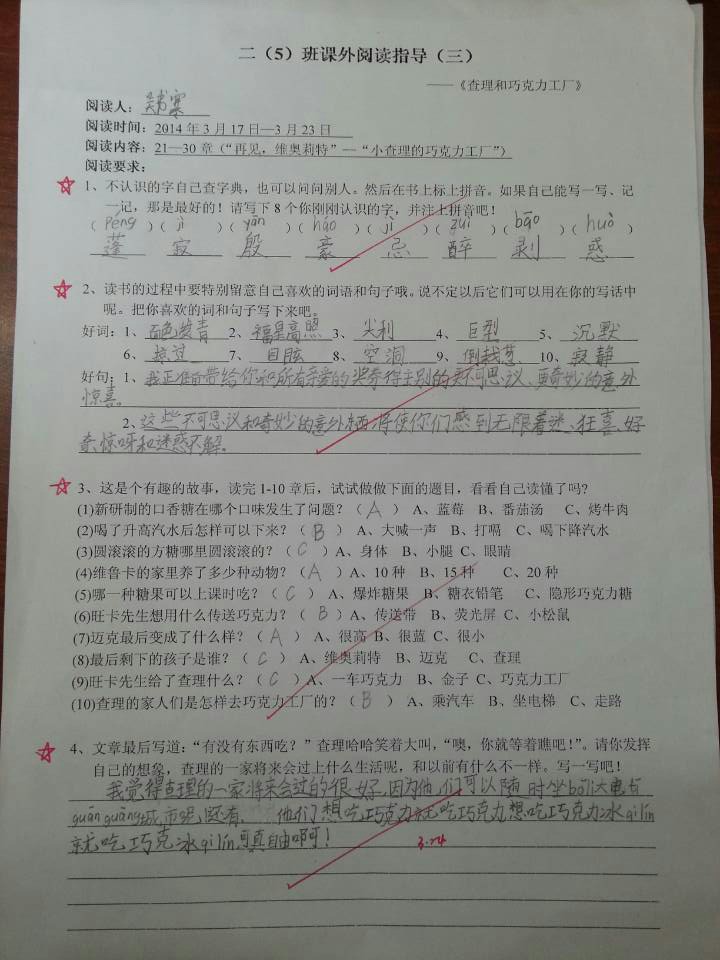 二（5）班课外阅读指导（三）
——《查理和巧克力工厂》
阅读人：
阅读时间：2014年3月17日—3月23日
阅读内容：21—30章（“再见，维奥莉特”—“小查理的巧克力工厂”）
阅读要求：
1、不认识的字自己查字典，也可以问问别人。然后在书上标上拼音。如果自己能写一写、记
一记，那是最好的！请写下8个你刚刚认识的字，并注上拼音吧！
（péng）（jì）（yān）（háo）（jì）（zuì）（bāo）（huò）
蓬 寂 殷 豪 忌 醉 剥 惑
2、读书的过程中要特别留意自己喜欢的词语和句子哦。说不定以后它们可以用在你的写话中
呢。把你喜欢的词和句子写下来吧。
好词：1、面色发青 2、福星高照 3、尖利 4、巨型 5、沉默
6、掠过 7、目眩 8、空洞 9、倒栽葱 10、寂静
好句：1、我正准备带给你和所有亲爱的奖券得主别的更不可思议、更奇妙的意外
惊喜。
2、这些不可思议和奇妙的意外将使你们感到无限着迷、狂喜、好
奇、惊呀和迷惑不解。
3、这是个有趣的故事，读完1-10章后，试试做做下面的题目，看看自己读懂了吗？
(1)新研制的口香糖在哪个口味发生了问题？（ A ） A、蓝莓 B、番茄汤 C、烤牛肉
(2)喝了升高汽水后怎样可以下来？（ B ） A、大喊一声 B、打嗝 C、喝下降汽水
(3)圆滚滚的方糖哪里圆滚滚的？（ C ）A、身体 B、小腿 C、眼睛
(4)维鲁卡的家里养了多少种动物？（ A ） A、10种 B、15种 C、20种
(5)哪一种糖果可以上课时吃？（ C ） A、爆炸糖果 B、糖衣铅笔 C、隐形巧克力糖
(6)旺卡先生想用什么传送巧克力？（ B ）A、传送带 B、荧光屏 C、小松鼠
(7)迈克最后变成了什么样？（ A ） A、很高 B、很蓝 C、很小
(8)最后剩下的孩子是谁？（ C ） A、维奥莉特 B、迈克 C、查理
(9)旺卡先生给了查理什么？（ C ）A、一车巧克力 B、金子 C、巧克力工厂
(10)查理的家人们是怎样去巧克力工厂的？（ B ） A、乘汽车 B、坐电梯 C、走路
4、文章最后写道：“有没有东西吃？”查理哈哈笑着大叫，“噢，你就等着瞧吧！”。请你发挥
自己的想象，查理的一家将来会过上什么生活呢，和以前有什么不一样。写一写吧！
我觉得查理的一家将来会过的很好，因为他们可以随时坐bōli大电梯
guān guāng城市呢！还有，他们想吃巧克力就吃巧克力想吃巧克力冰qilín
就吃巧克冰qilín，可真自由啊！
3.24